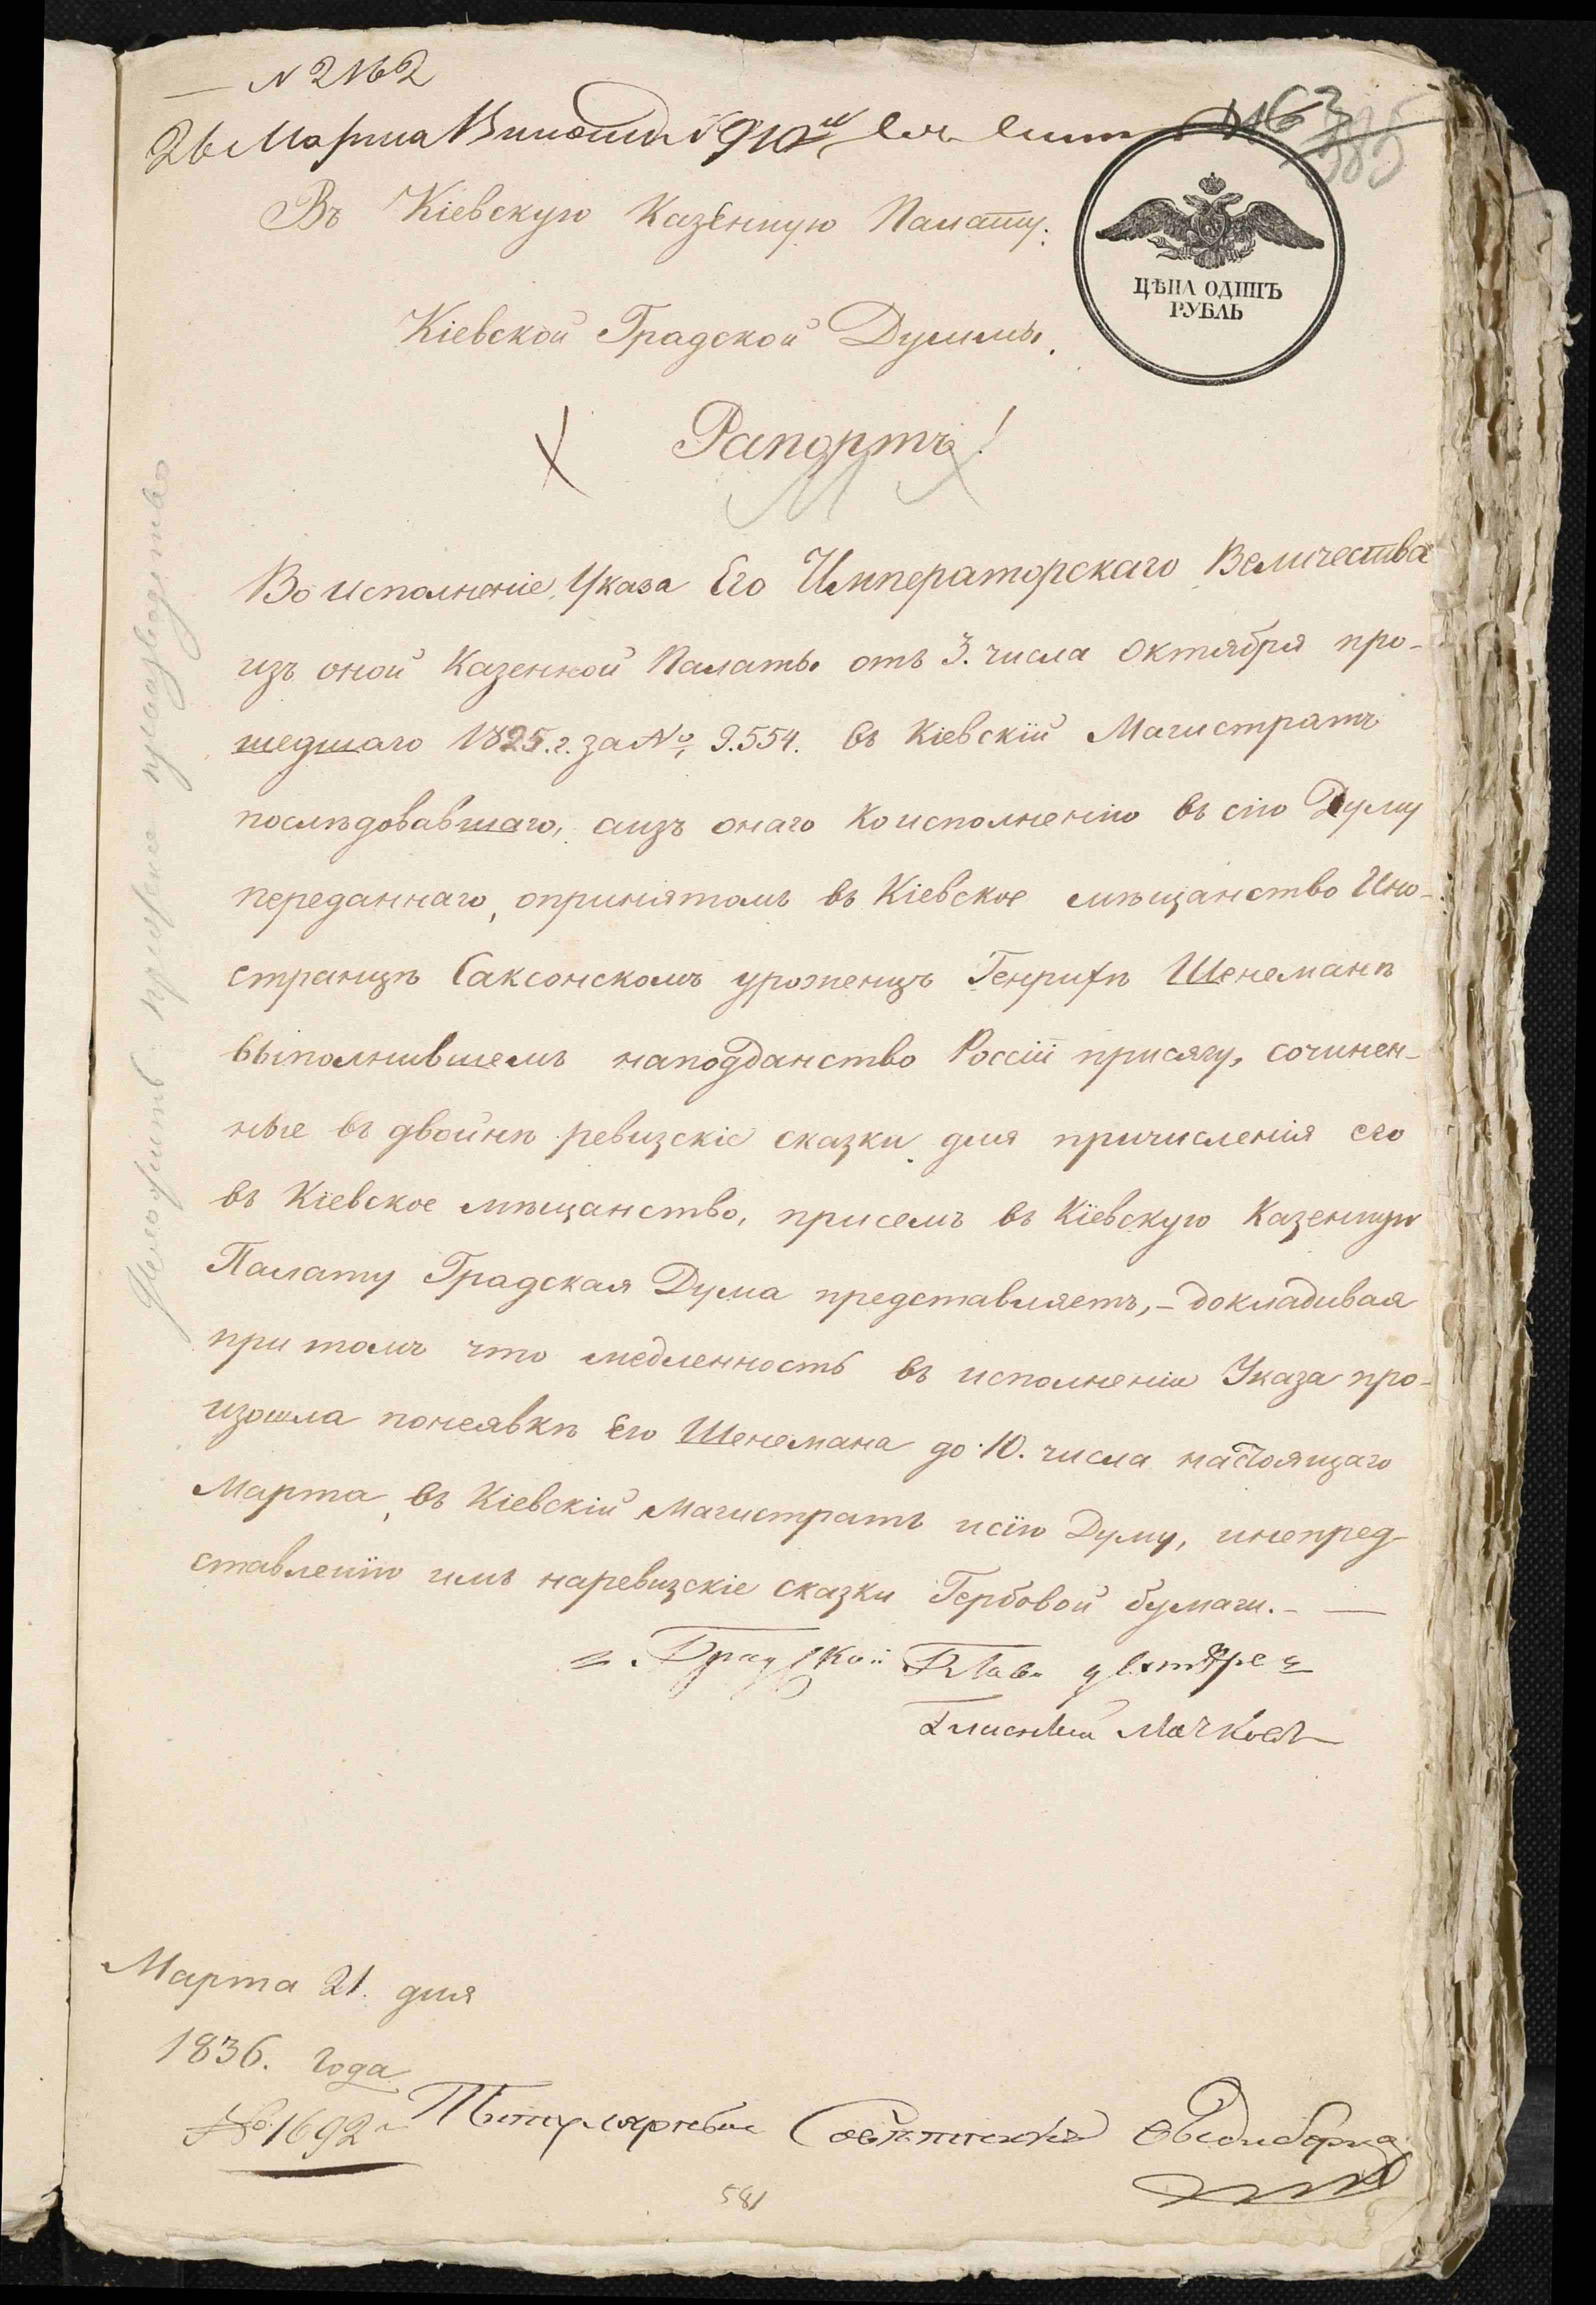 N 2162
26 Марта
Въ Кіевскую Казенную Палату.
ЦѢНА ОДИНЪ
РУБЛЬ
Кіевской Градской Думы.
Рапортъ!
Во исполненіе Указа Его Императорскаго Величества
изъ оной Казенной Палаты отъ 3. числа Октября про-
шедшаго 1825.г. за № 9.554. въ Кіевскій Магистратъ
послѣдовавшаго, аизъ онаго Коисполненію въ сію Думу
переданнаго, опринятомъ въ Кіевское мѣщанство Ино-
странцѣ Саксонскомъ уроженцѣ Генрихѣ Шенеманѣ
выполнившемъ наподданство Россіи присягу, сочинен-
ные въ двойнѣ ревизскіе сказки для причисленія его
въ Кіевское мѣщанство, присемъ въ Кіевскую Казенную
Палату Градская Дума представляетъ,- докладивая
при томъ что медленность въ исполненіи Указа про-
изошла понеявкѣ Его Шенемана до 10. числа настоящаго
Марта, въ Кіевскій Магистратъ исію Думу, инепред-
ставленію имъ наревизскіе сказки Гербовой бумаги. - —
Градской Глава
Марта 21. дня
1836. года
№ 1692
Титулярный Совѣтникъ
581